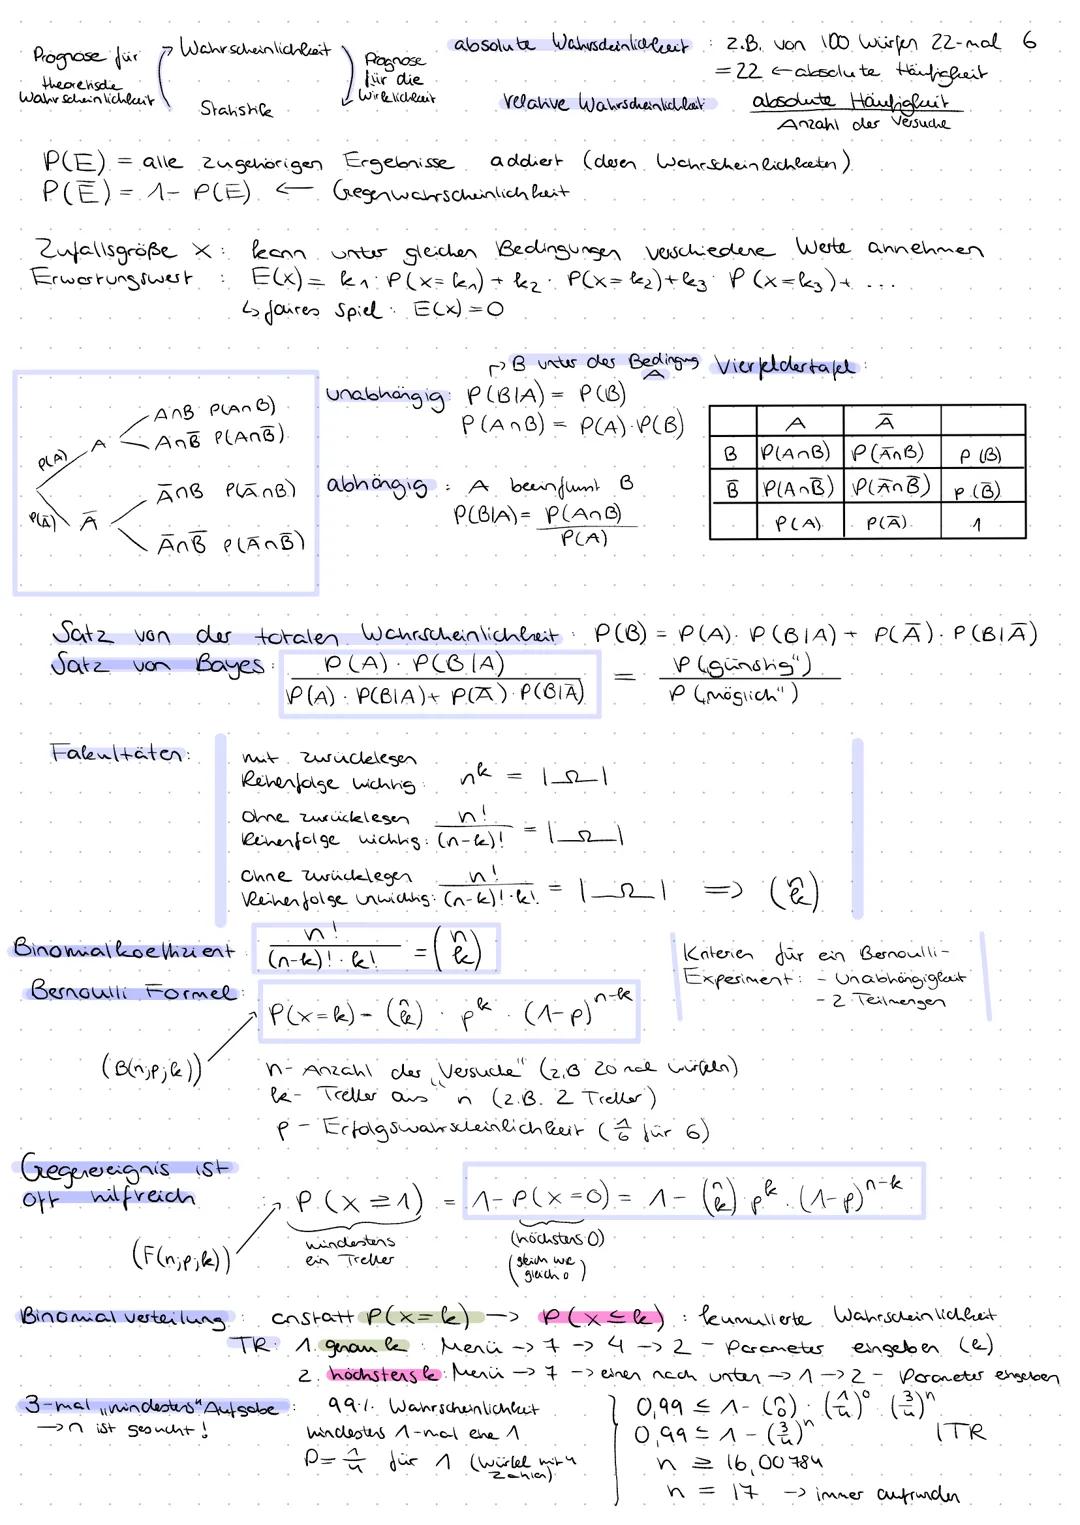 Prognose für theoretische Wahrscheinlichkeit
Wahrscheinlichkeit
Statistik
Prognose für die Wirklichkeit
absolute Wahrscheinlichkeit : z.B. von 100 Würfen 22-mal 6
= 22 ← absolute Häufigkeit
relative Wahrscheinlichkeit absolute Häufigkeit / Anzahl der Versuche
P(E) = alle zugehörigen Ergebnisse addiert (deren Wahrscheinlichkeiten)
P(E̅) = 1 - P(E) ← Gegenwahrscheinlichkeit
Zufallsgröße X : kann unter gleichen Bedingungen verschiedene Werte annehmen
Erwartungswert : E(X) = k₁ · P(X=k₁) + k₂ · P(X=k₂) + k₃ · P(X=k₃) + ...
↳ faires Spiel : E(X) = 0
P(A) A A∩B P(A∩B)
A∩B̅ P(A∩B̅)
P(A̅) A̅ A̅∩B P(A̅∩B)
A̅∩B̅ P(A̅∩B̅)
→ B unter der Bedingung A
unabhängig: P(B|A) = P(B)
P(A∩B) = P(A)·P(B)
abhängig : A beeinflusst B
P(B|A) = P(A∩B) / P(A)
Vierfeldertafel :
A A̅
B P(A∩B) P(A̅∩B) P(B)
B̅ P(A∩B̅) P(A̅∩B̅) P(B̅)
P(A) P(A̅) 1
Satz von der totalen Wahrscheinlichkeit : P(B) = P(A) · P(B|A) + P(A̅) · P(B|A̅)
Satz von Bayes : P(A) · P(B|A) / P(A) · P(B|A) + P(A̅) · P(B|A̅) = P(„günstig") / P(„möglich")
Fakultäten:
mit zurücklegen
Reihenfolge wichtig: n^k = |Ω|
Ohne zurücklegen
Reihenfolge wichtig: n! / (n-k)! = |Ω|
Ohne zurücklegen
Reihenfolge unwichtig: n! / (n-k)!·k! = |Ω| => (n k)
Binomialkoeffizient : n! / (n-k)!·k! = (n k)
Kriterien für ein Bernoulli-
Experiment: - Unabhängigkeit
- 2 Teilmengen
Bernoulli Formel: P(X=k) = (n k) · p^k · (1-p)^n-k
(B(n;p;k))
n - Anzahl der „Versuche" (z.B 20 mal würfeln)
k - Treffer aus n (z.B. 2 Treffer)
p - Erfolgswahrscheinlichkeit (1/6 für 6)
Gegenereignis ist
oft hilfreich
P(X≥1) = 1 - P(X=0) = 1 - (n k) · p^k · (1-p)^n-k
mindestens ein Treffer
(höchstens 0)
(gleich wie gleich 0)
(F(n;p;k))
Binomialverteilung : anstatt P(X=k) → P(X≤k) : kumulierte Wahrscheinlichkeit
TR: 1. genau k : Menü → 7 → 4 → 2 - Parameter eingeben (k)
2. höchstens k : Menü → 7 → einen nach unten → 1 → 2 - Parameter eingeben
3-mal „mindestens" Aufgabe : 99% Wahrscheinlichkeit
→ n ist gesucht!
mindestens 1-mal eine 1
p = 1/4 für 1 (Würfel mit 4 Zahlen)
0,99 ≤ 1 - (n 0) · (1/4)^0 · (3/4)^n
0,99 ≤ 1 - (3/4)^n |TR
n ≥ 16,00784
n = 17 → immer aufrunden